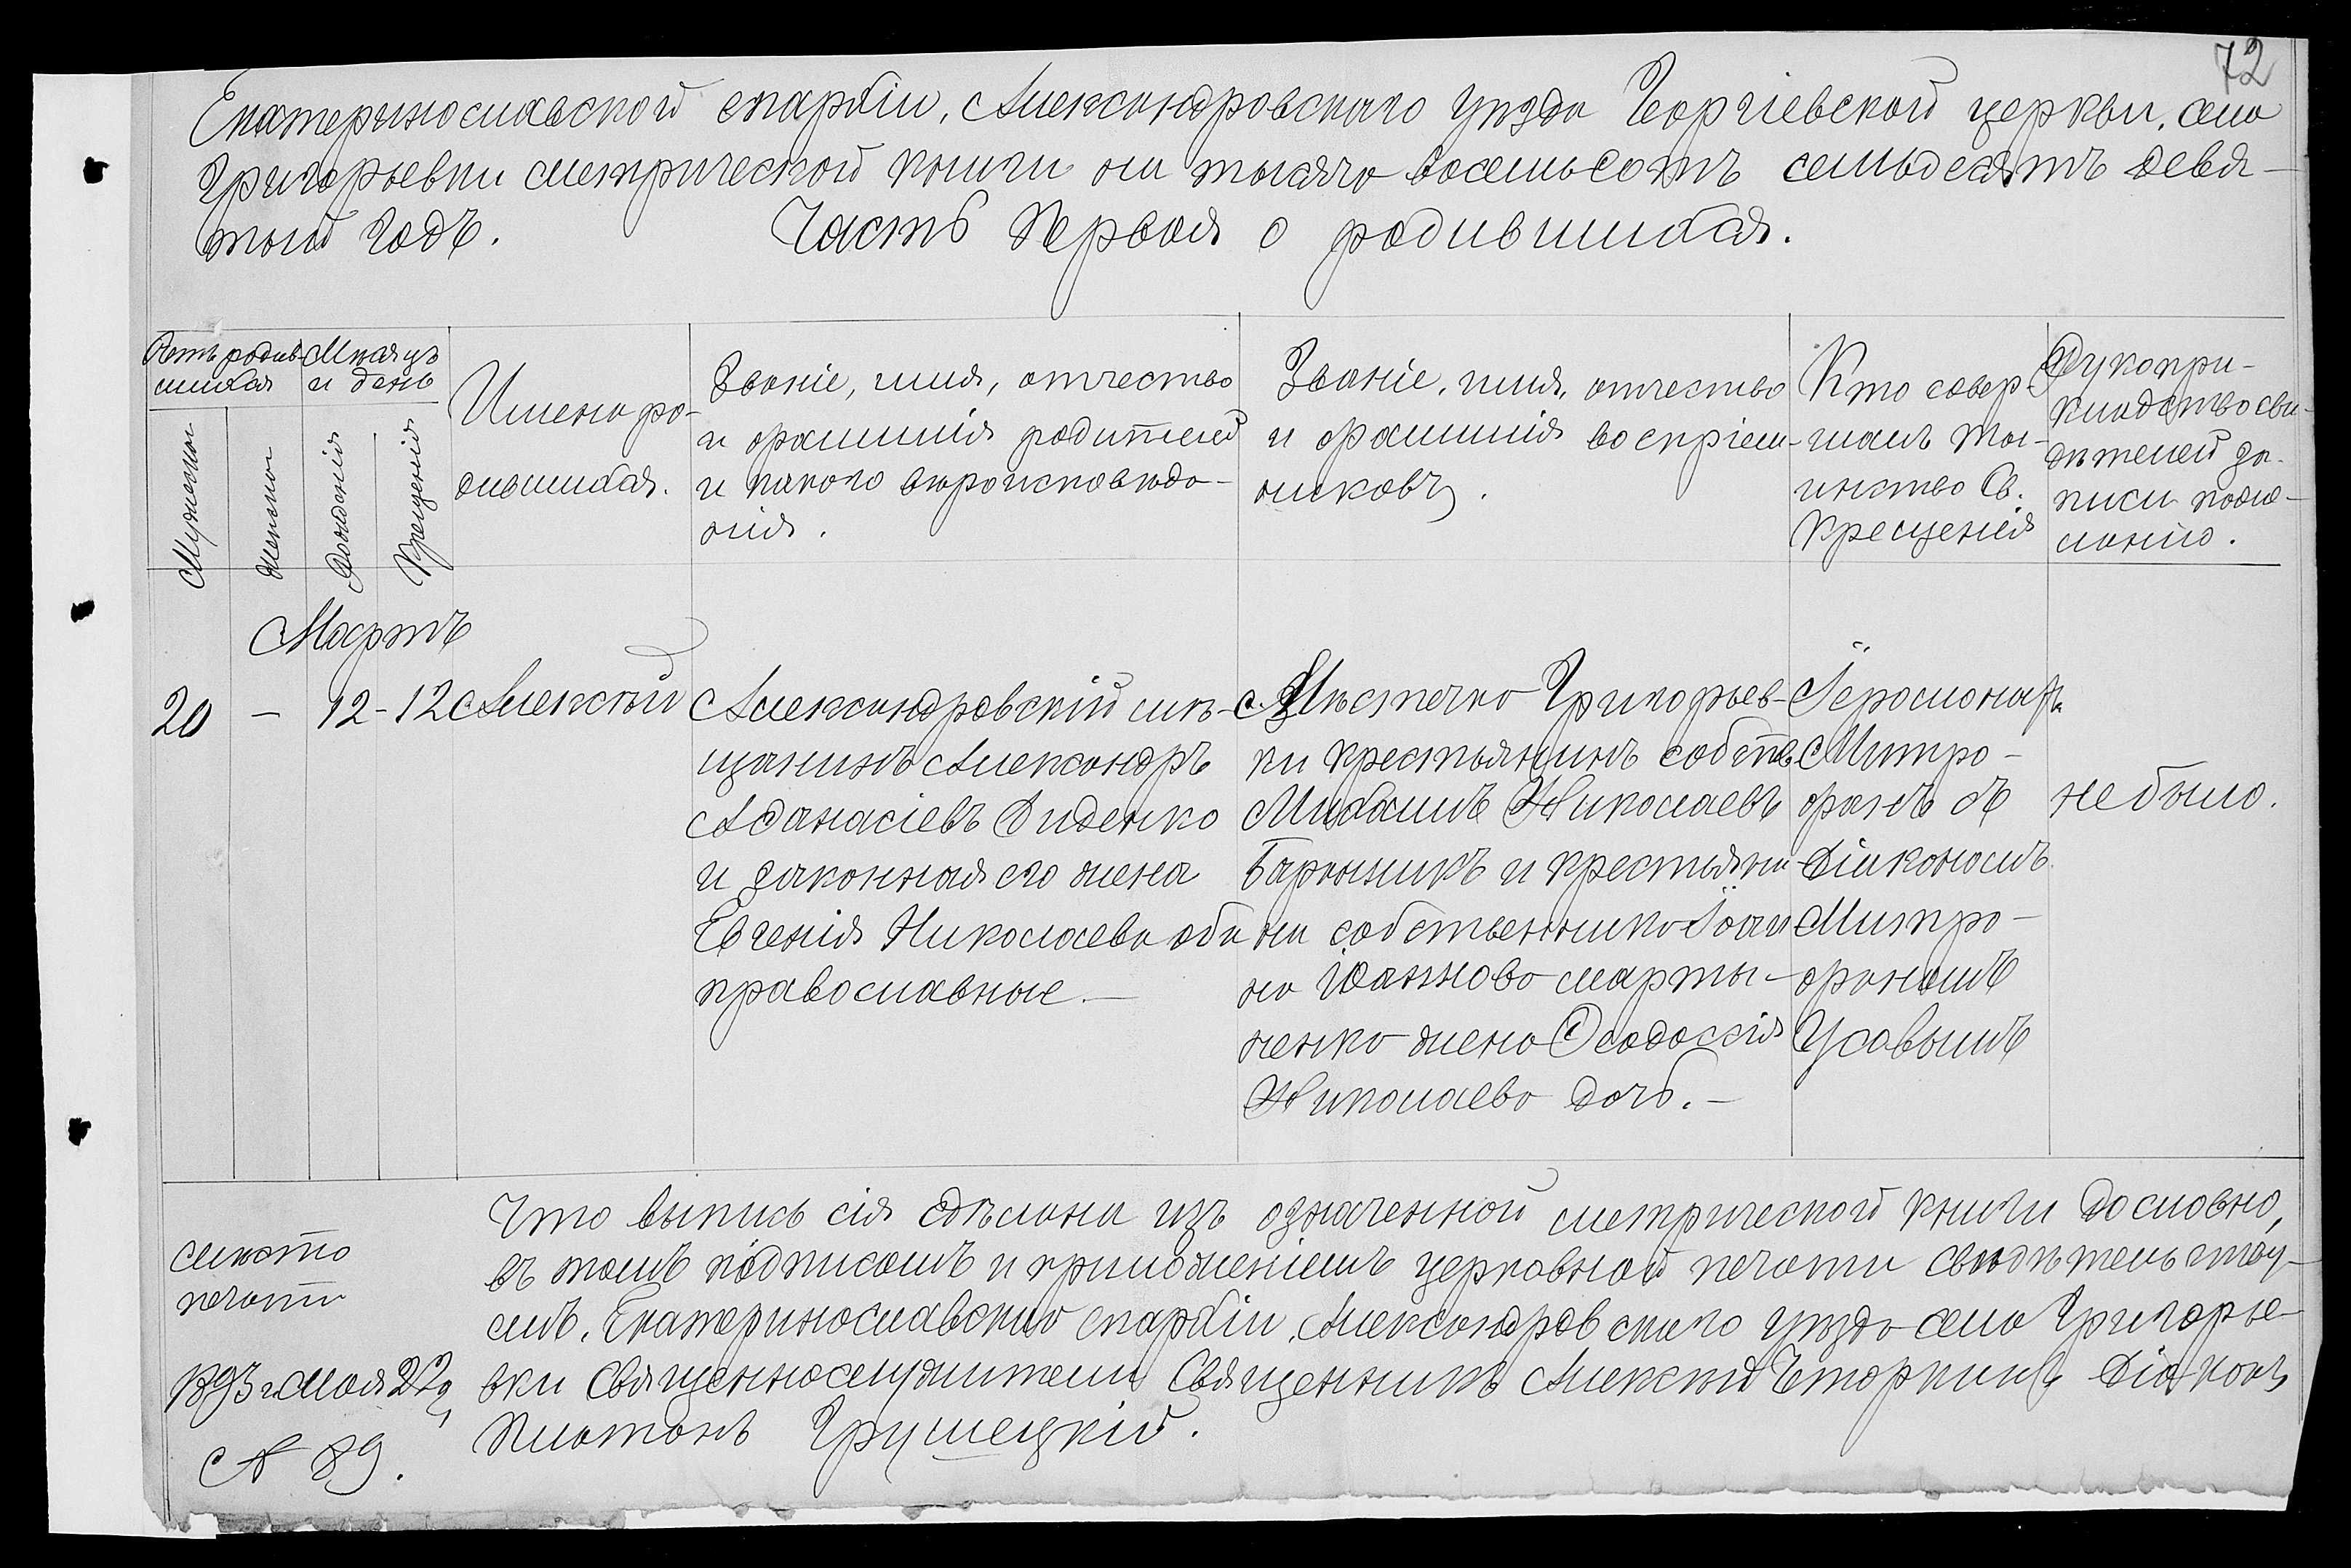 72
Екатеринославской епархіи, Александровскаго уѣзда Георгіевской церкви, села
Григорьевки метрической книги на тысяча восемьсотъ семьдесятъ девя-
тый годъ. Часть Первая о родившихся.
Счетъ родив-
шихся
Мужеска
Женска
Мѣсяцъ
и день
Рожденія
Крещенія
Имена ро-
дившихся.
Званіе, имя, отчество
и фамилія родителей
и какого вѣроисповѣда-
нія.
Званіе, имя, отчество
и фамилія воспріем-
никовъ.
Кто совер-
шалъ та-
инство Св.
Крещенія
Рукопри-
кладство сви-
дѣтелей за-
писи по же-
ланію.
Мартъ
20 — 12 - 12 Алексѣй
Александровскій мѣ-
щанинъ Александръ
Аѳанасіевъ Диденко
и законная его жена
Евгенія Николаева оба
православные. —
Мѣстечка Григорьев-
ки крестьянинъ собств
Михаилъ Николаевъ
Баранникъ и крестьяни-
на собственника Іоан
на Іоаннова Марты-
ненко жена Ѳеодосія
Николаева дочь. —
Іеромонахъ
Митро-
фанъ съ
Діакономъ
Митро-
фаномъ
Усовымъ
не было.
Что выпись сія сдѣлана изъ означенной метрической книги дословно,
въ томъ подписомъ и приложеніемъ церковной печати свидѣтельству-
емъ. Екатеринославской епархіи, Александровскаго уѣзда села Григорье-
вки Священнослужители Священникъ Алексѣй Діаконъ
Платонъ Грушецкій.
Мѣсто
печати
1893 г. Мая 22
№ 89.